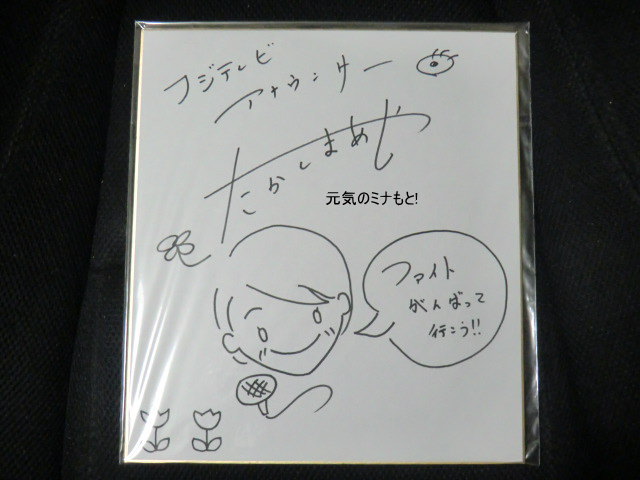 フジテレビ
アナウンサー
たかしまめい
元気のミナもと!
ファイト
がんばって
行こう!!